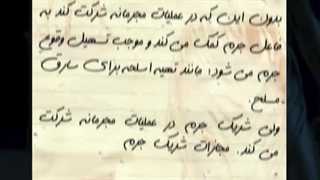 بدون این که در عملیات مجرمانه شرکت کند به
فاعل جرم کمک می کند و موجب تسهیل وقوع
جرم می شود؛ مانند تهیه اسلحه برای سارق
مسلح.
ولی شریک جرم در عملیات مجرمانه شرکت
می کند. مجازات شریک جرم